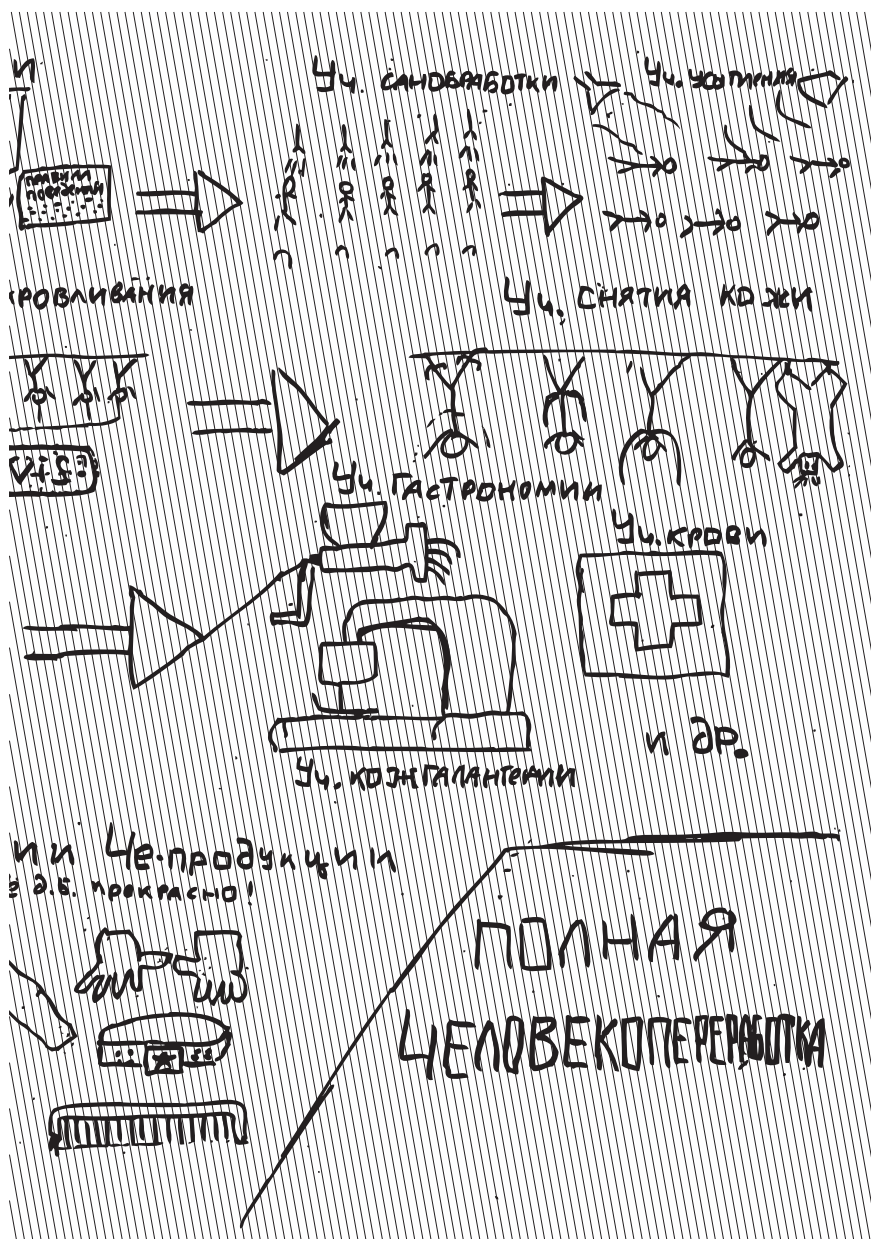 И
Уч. САНОБРАБОТКИ
Уч. УСЫПЛЕНИЯ
ПРАВИЛА
ПОВЕДЕНИЯ
КРОВЛИВАНИЯ
Уч. СНЯТИЯ КОЖИ
Уч. ГАСТРОНОМИИ
Уч. КРОВИ
И ДР.
Уч. КОЖГАЛАНТЕРЕИ
ИИ Че-продукции
Е д.б. ПРЕКРАСНО!
ПОЛНАЯ
ЧЕЛОВЕКОПЕРЕРАБОТКА